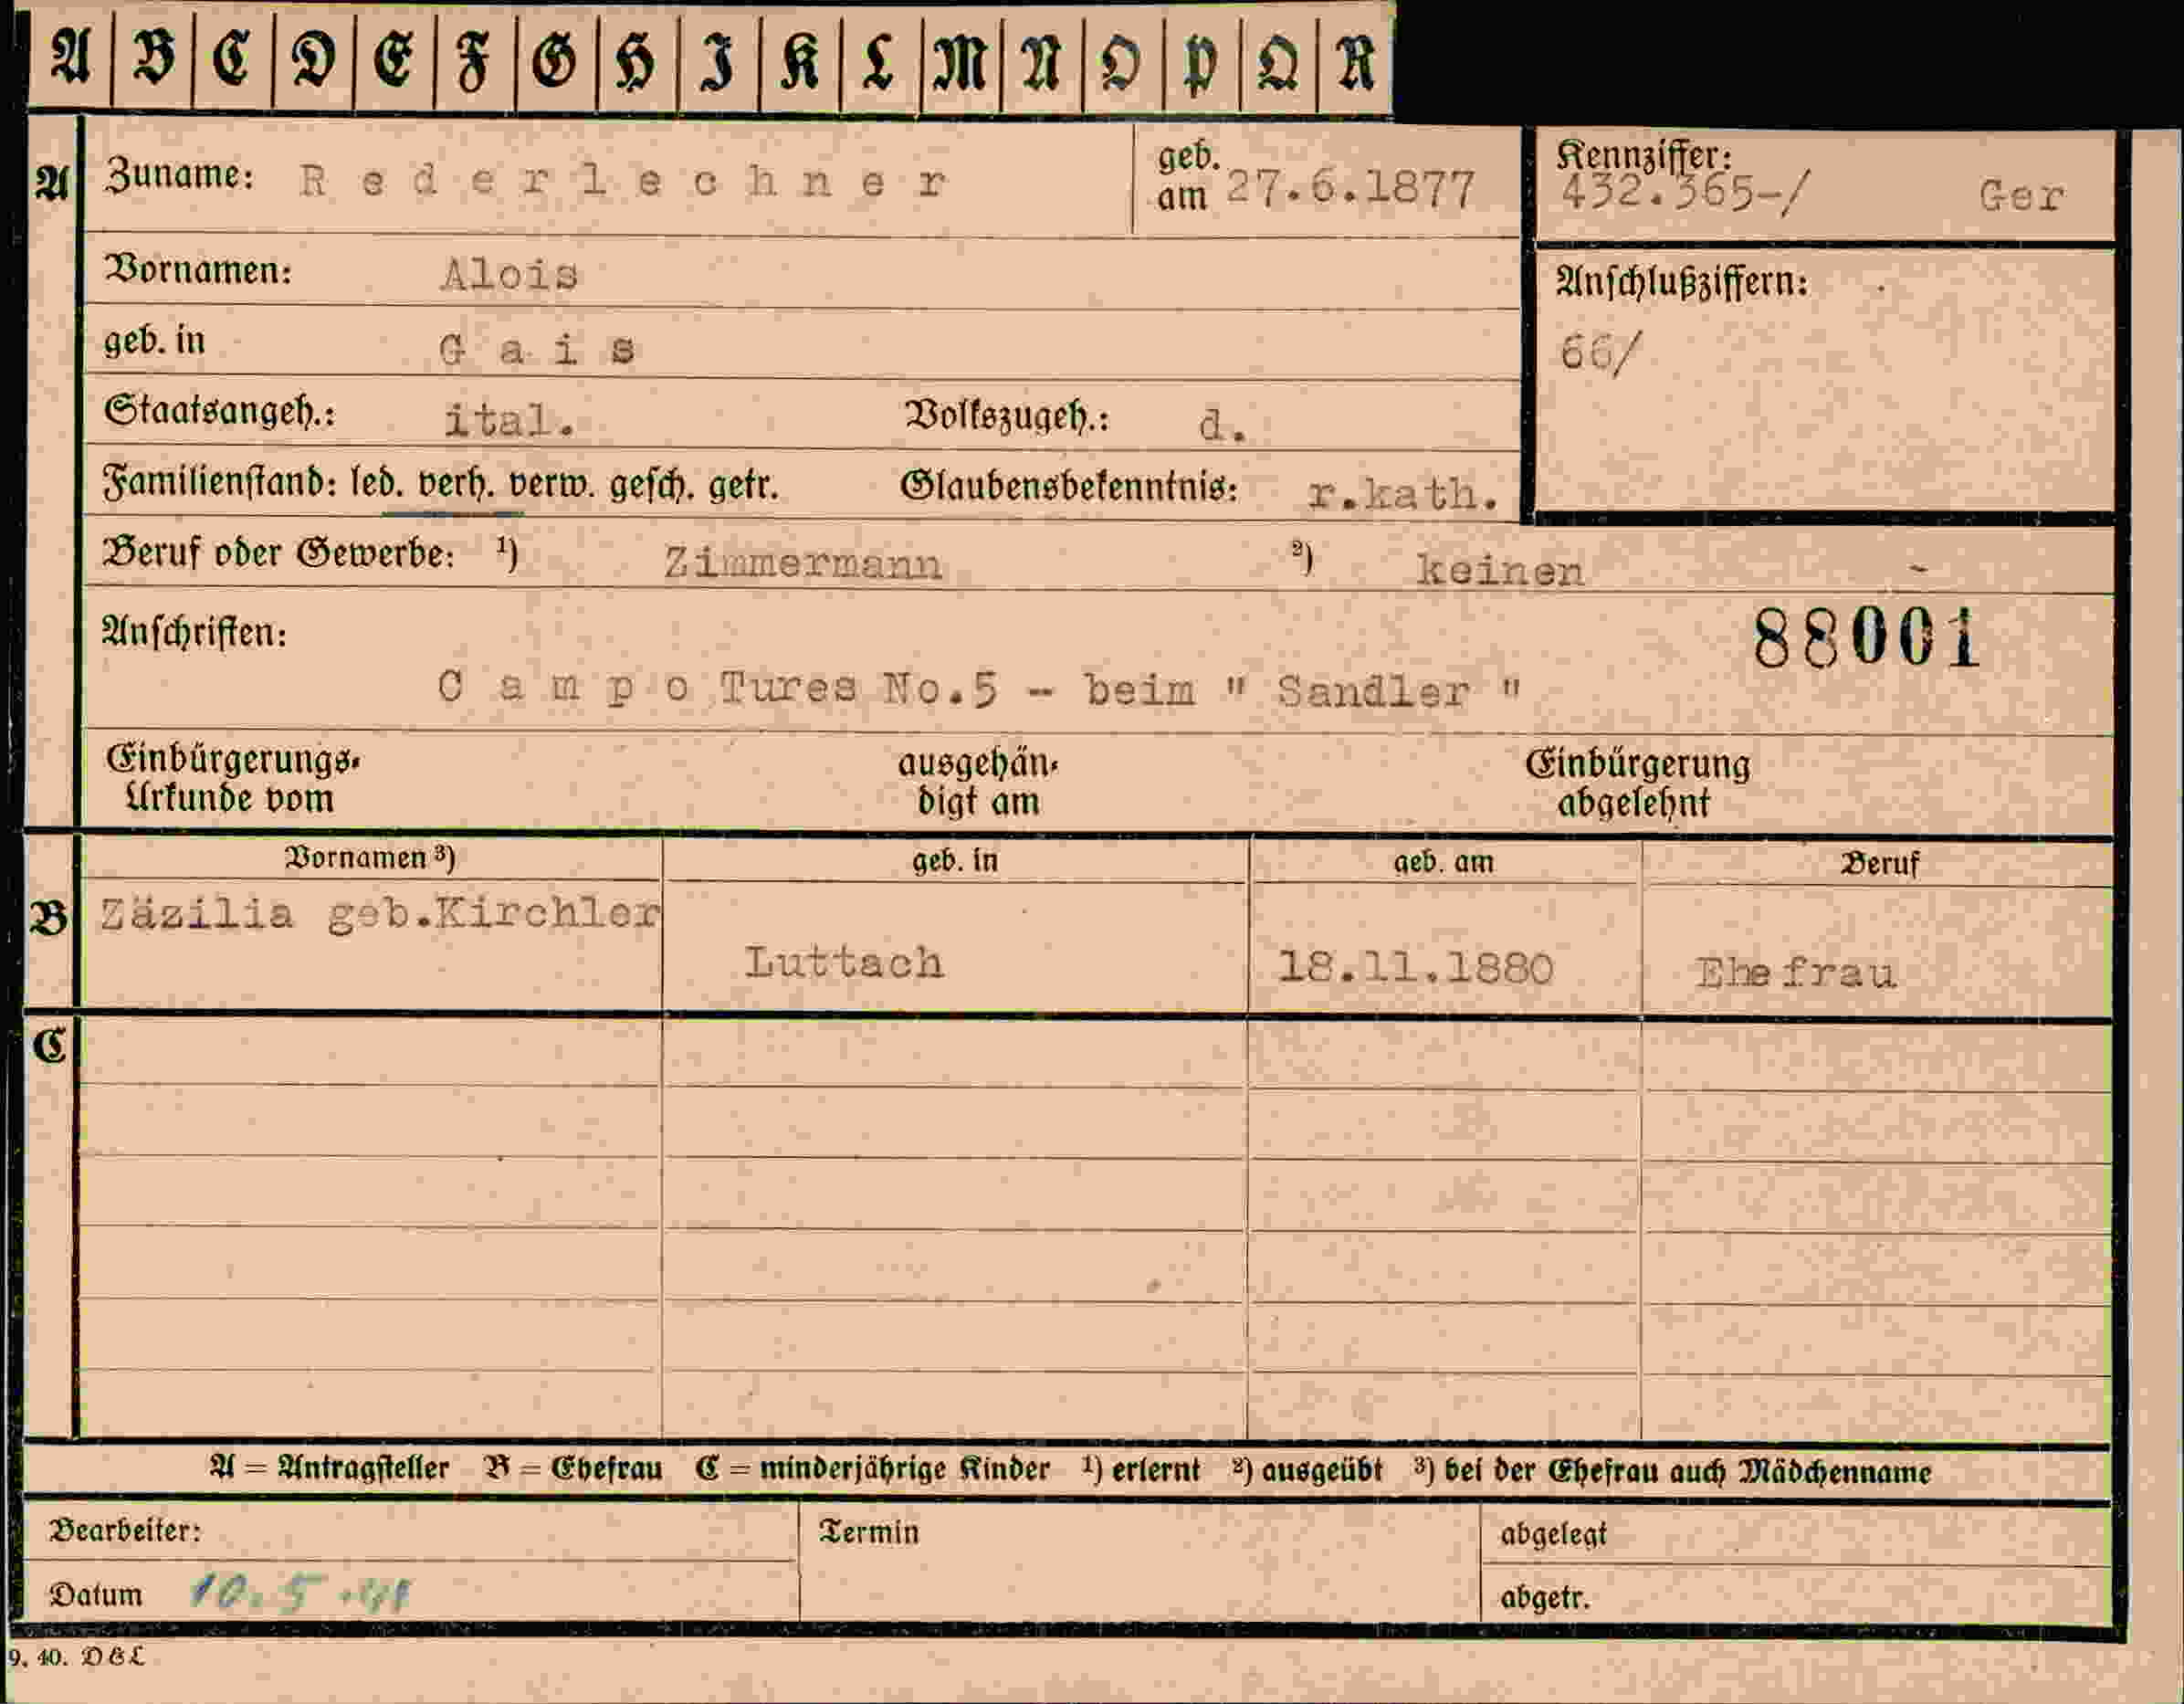 A B C D E F G H I K L M N O P Q R
A Zuname: Rederlechner geb. am 27.6.1877 Kennziffer: 432.365-/ Ger
Vornamen: Alois Anschlußziffern:
geb. in Gais 66/
Staatsangeh.: ital. Volkszugeh.: d.
Familienstand: led. verh. verw. gesch. getr. Glaubensbekenntnis: r.kath.
Beruf oder Gewerbe: ¹) Zimmermann ²) keinen -
Anschriften: 88001
Campo Tures No.5 - beim " Sandler "
Einbürgerungs- ausgehän- Einbürgerung
Urkunde vom digt am abgelehnt
Vornamen ³) geb. in geb. am Beruf
B Zäzilia geb.Kirchler
Luttach 18.11.1880 Ehefrau
C
A = Antragsteller B = Ehefrau C = minderjährige Kinder ¹) erlernt ²) ausgeübt ³) bei der Ehefrau auch Mädchenname
Bearbeiter: Termin abgelegt
Datum 10.5.41 abgetr.
9. 40. D&L